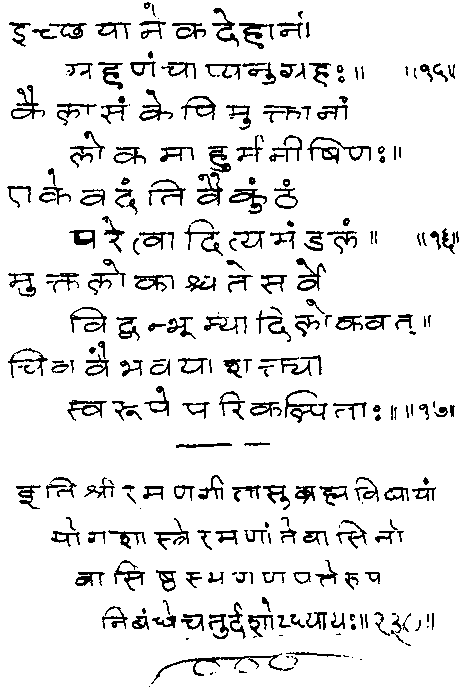 इच्छयानेकदेहानां
ग्रहणंचाप्यनुग्रहः॥ ॥१५॥
कैलासंकेपिमुक्तानां
लोकमाहुर्मनीषिणः॥
एकेवदंतिवैकुंठं
परेत्वादित्यमंडलं॥ ॥१६॥
मुक्तलोकाश्चतेसर्वे
विद्वन्भूम्यादिलोकवत्॥
चित्रवैभवयाशक्त्या
स्वरूपेपरिकल्पिताः॥॥१७॥
इतिश्रीरमणगीतासुब्रह्मविद्यायां
योगशास्त्रेरमणांतेवासिनो
वासिष्ठस्यगणपतेरुप
निबंधेचतुर्दशोऽध्यायः॥